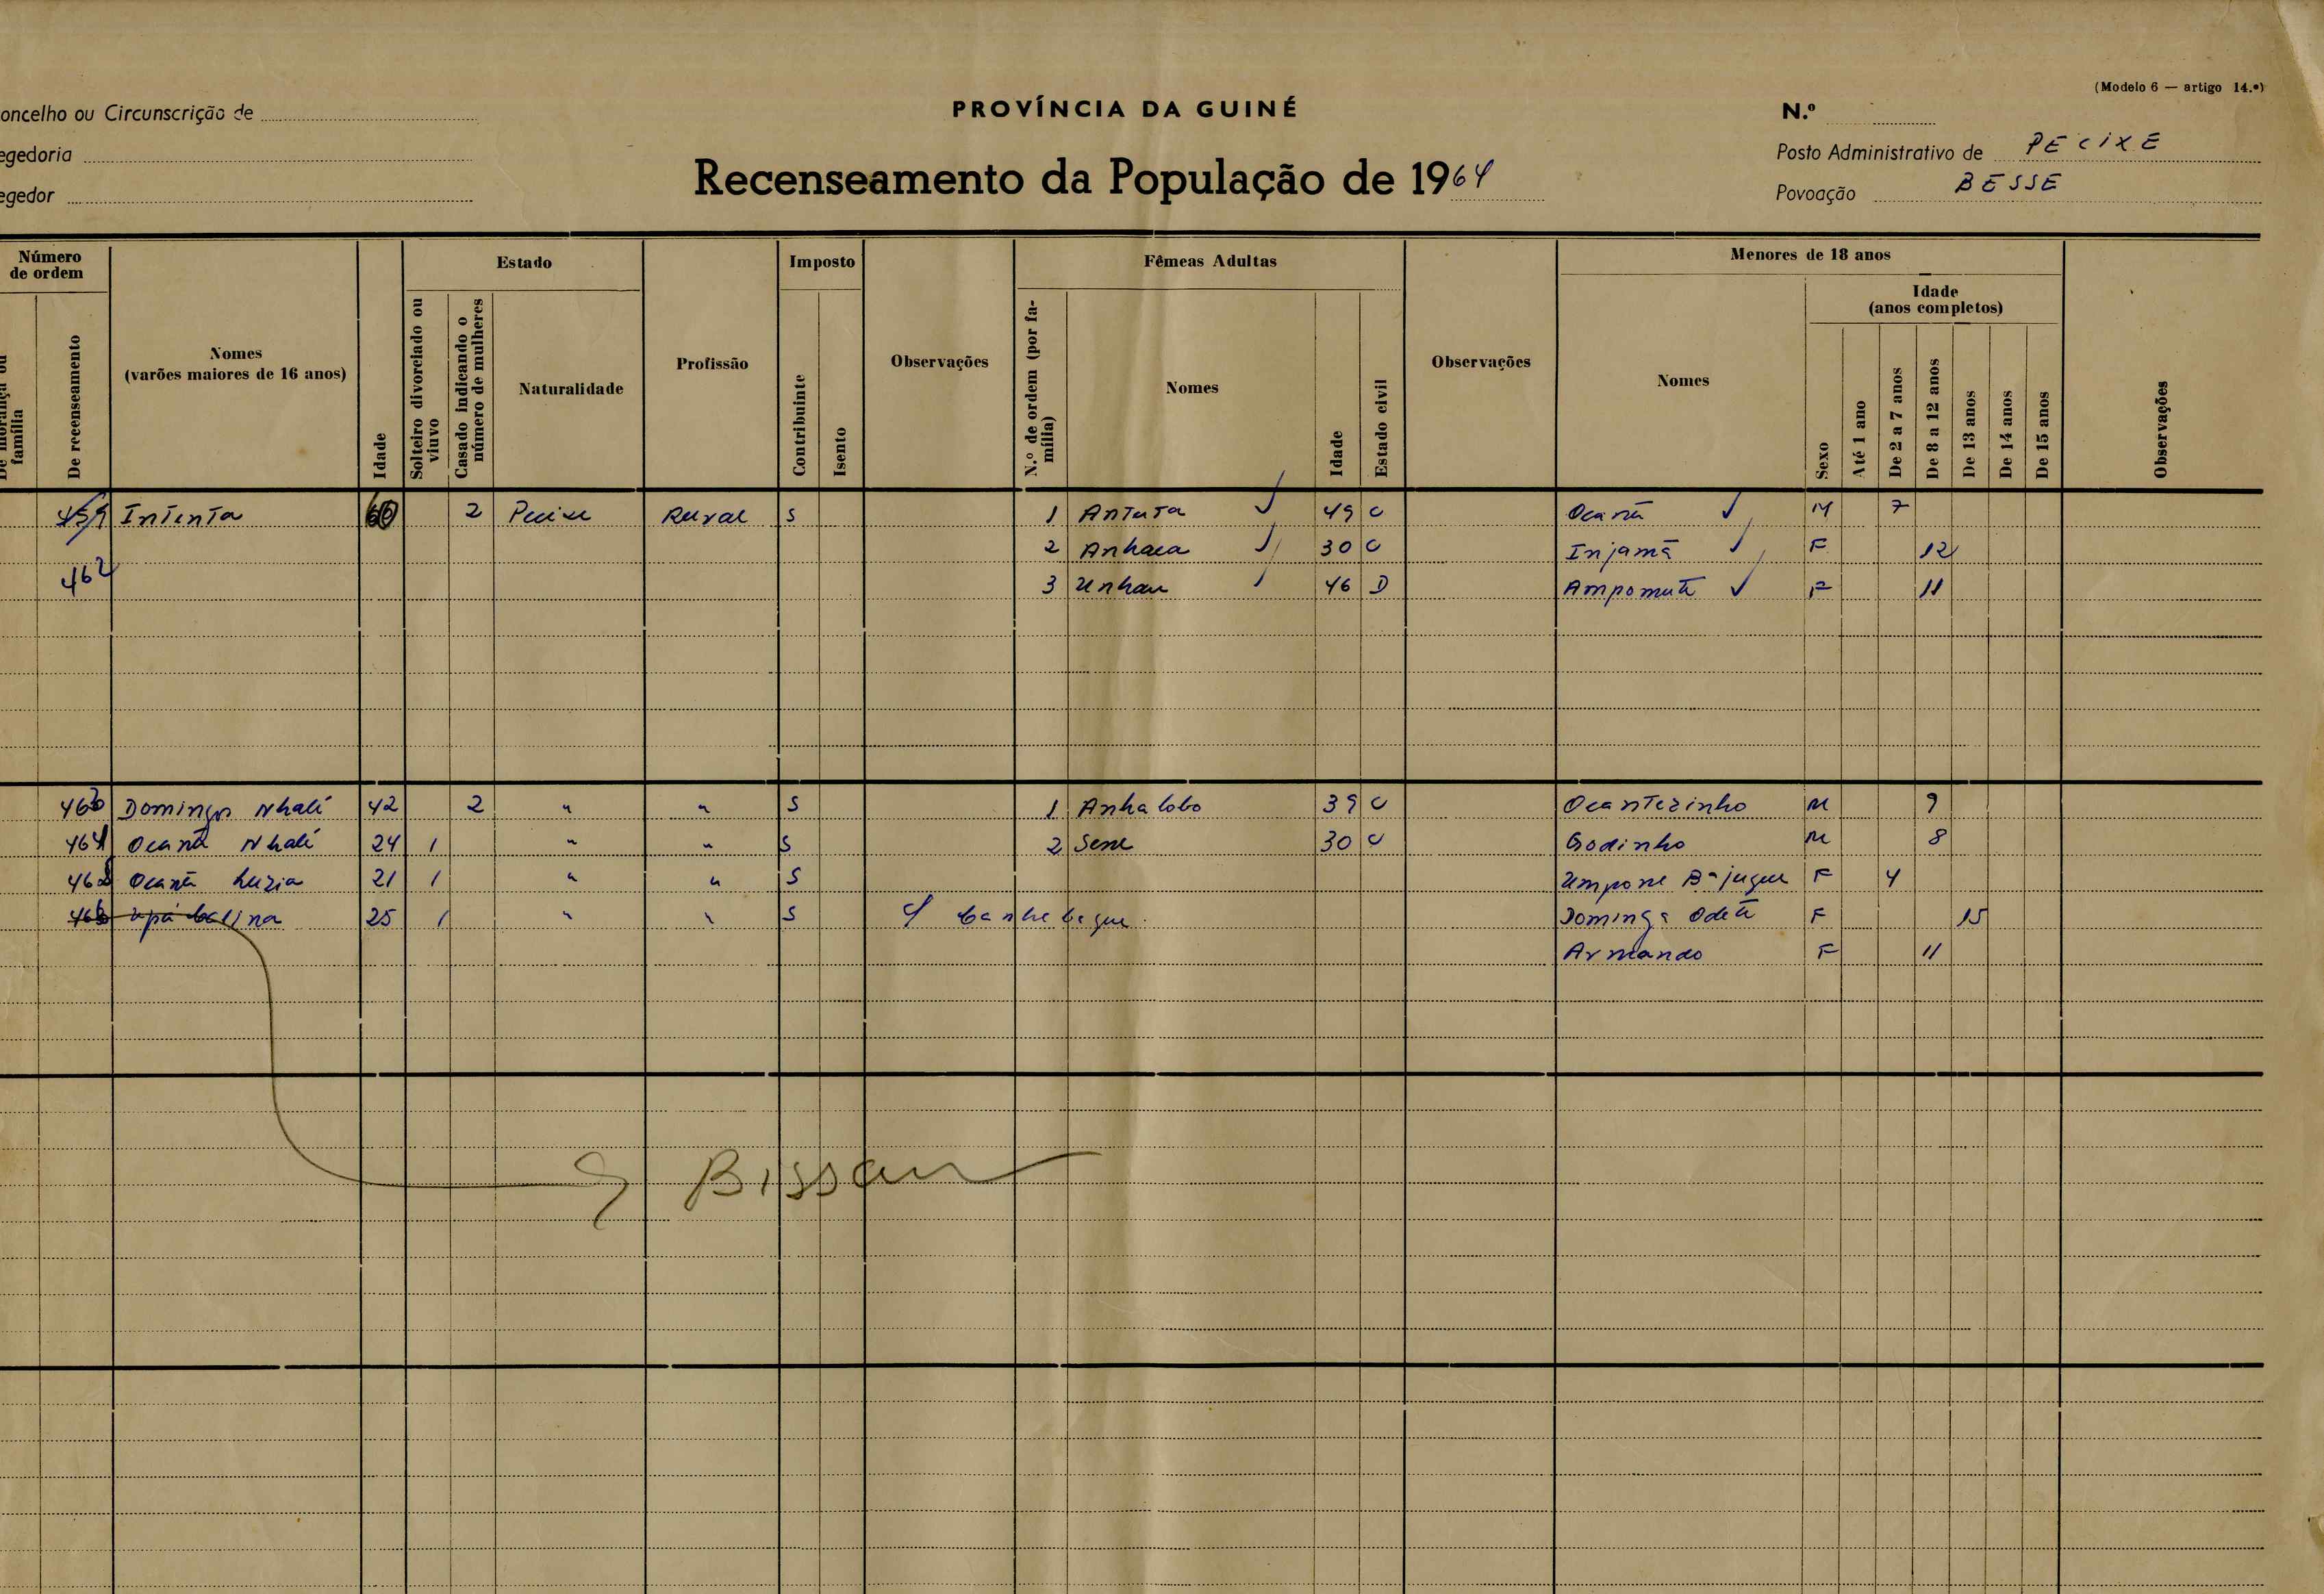 (Modelo 6 — artigo 14.º)
oncelho ou Circunscrição de
PROVÍNCIA DA GUINÉ
N.º
egedoria
Posto Administrativo de PECIXE
Recenseamento da População de 1964
egedor
Povoação BESSE
Número de ordem
Estado
Imposto
Fêmeas Adultas
Menores de 18 anos
Idade (anos completos)
De morança ou família
De recenseamento
Nomes (varões maiores de 16 anos)
Idade
Solteiro divorciado ou viuvo
Casado indicando o número de mulheres
Naturalidade
Profissão
Contribuinte
Isento
Observações
N.º de ordem (por família)
Nomes
Idade
Estado civil
Observações
Nomes
Sexo
Até 1 ano
De 2 a 7 anos
De 8 a 12 anos
De 13 anos
De 14 anos
De 15 anos
Observações
Intenta 60 2 Pecixe Rural S 1 Antuta 49 C Ocantê M 7
2 Anhaca 30 C Injamã F 12
462 3 Unhau 46 D Ampomutê F 11
463 Domingos Nhalé 42 2 " " S 1 Anhalobo 39 C Ocantezinho M 9
464 Ocantê Nhalé 24 1 " " S 2 Sene 30 C Godinho M 8
Ocantê Luzia 21 1 " " S Umpone F 4
25 1 " " S Dominga Odete F 15
Armando F 11
Bissau